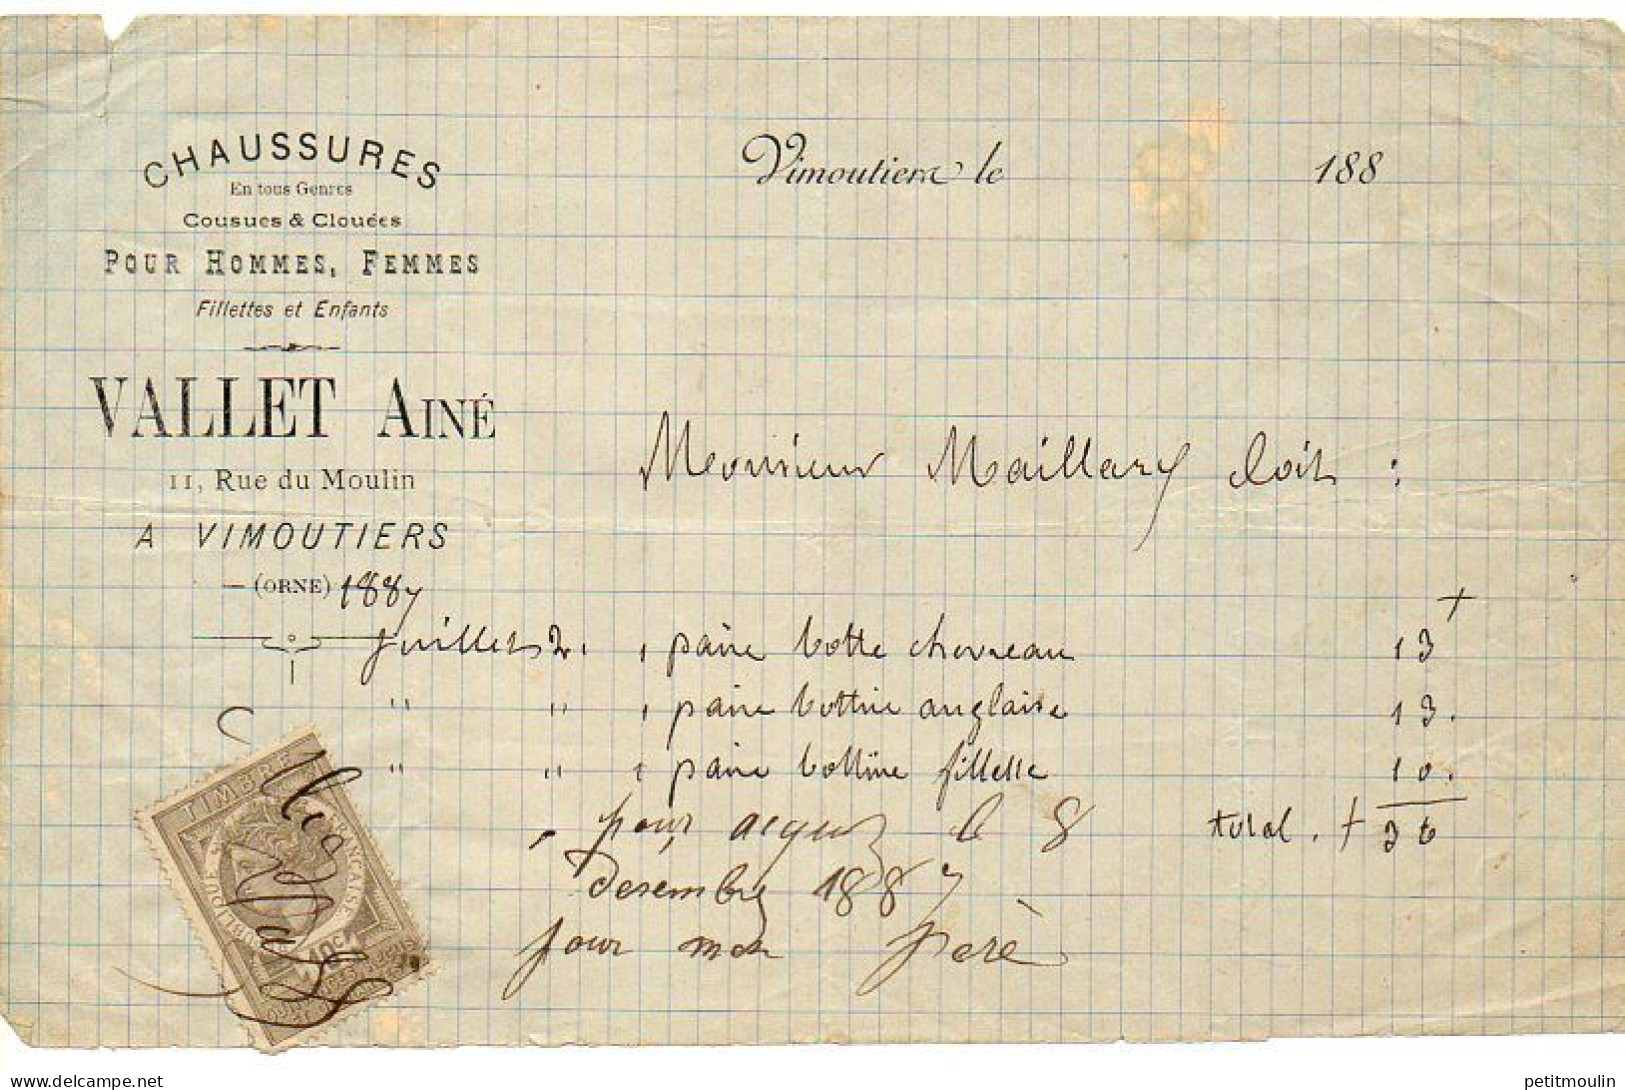 CHAUSSURES
En tous Genres
Cousues & Clouées
POUR HOMMES, FEMMES
Fillettes et Enfants
VALLET AINÉ
11, Rue du Moulin
A VIMOUTIERS
(ORNE) 1887
Vimoutiers le 188
Monsieur Maillard doit :
Juillet 2. 1 paire botte chevreau 13
" " 1 paire bottine anglaise 13.
" " 1 paire bottine fillette 10.
total. + 36
pour acquit le 8
desembre 1887
pour mon père
TIMBRE
FRANÇAISE
10c
delcampe.net
petitmoulin